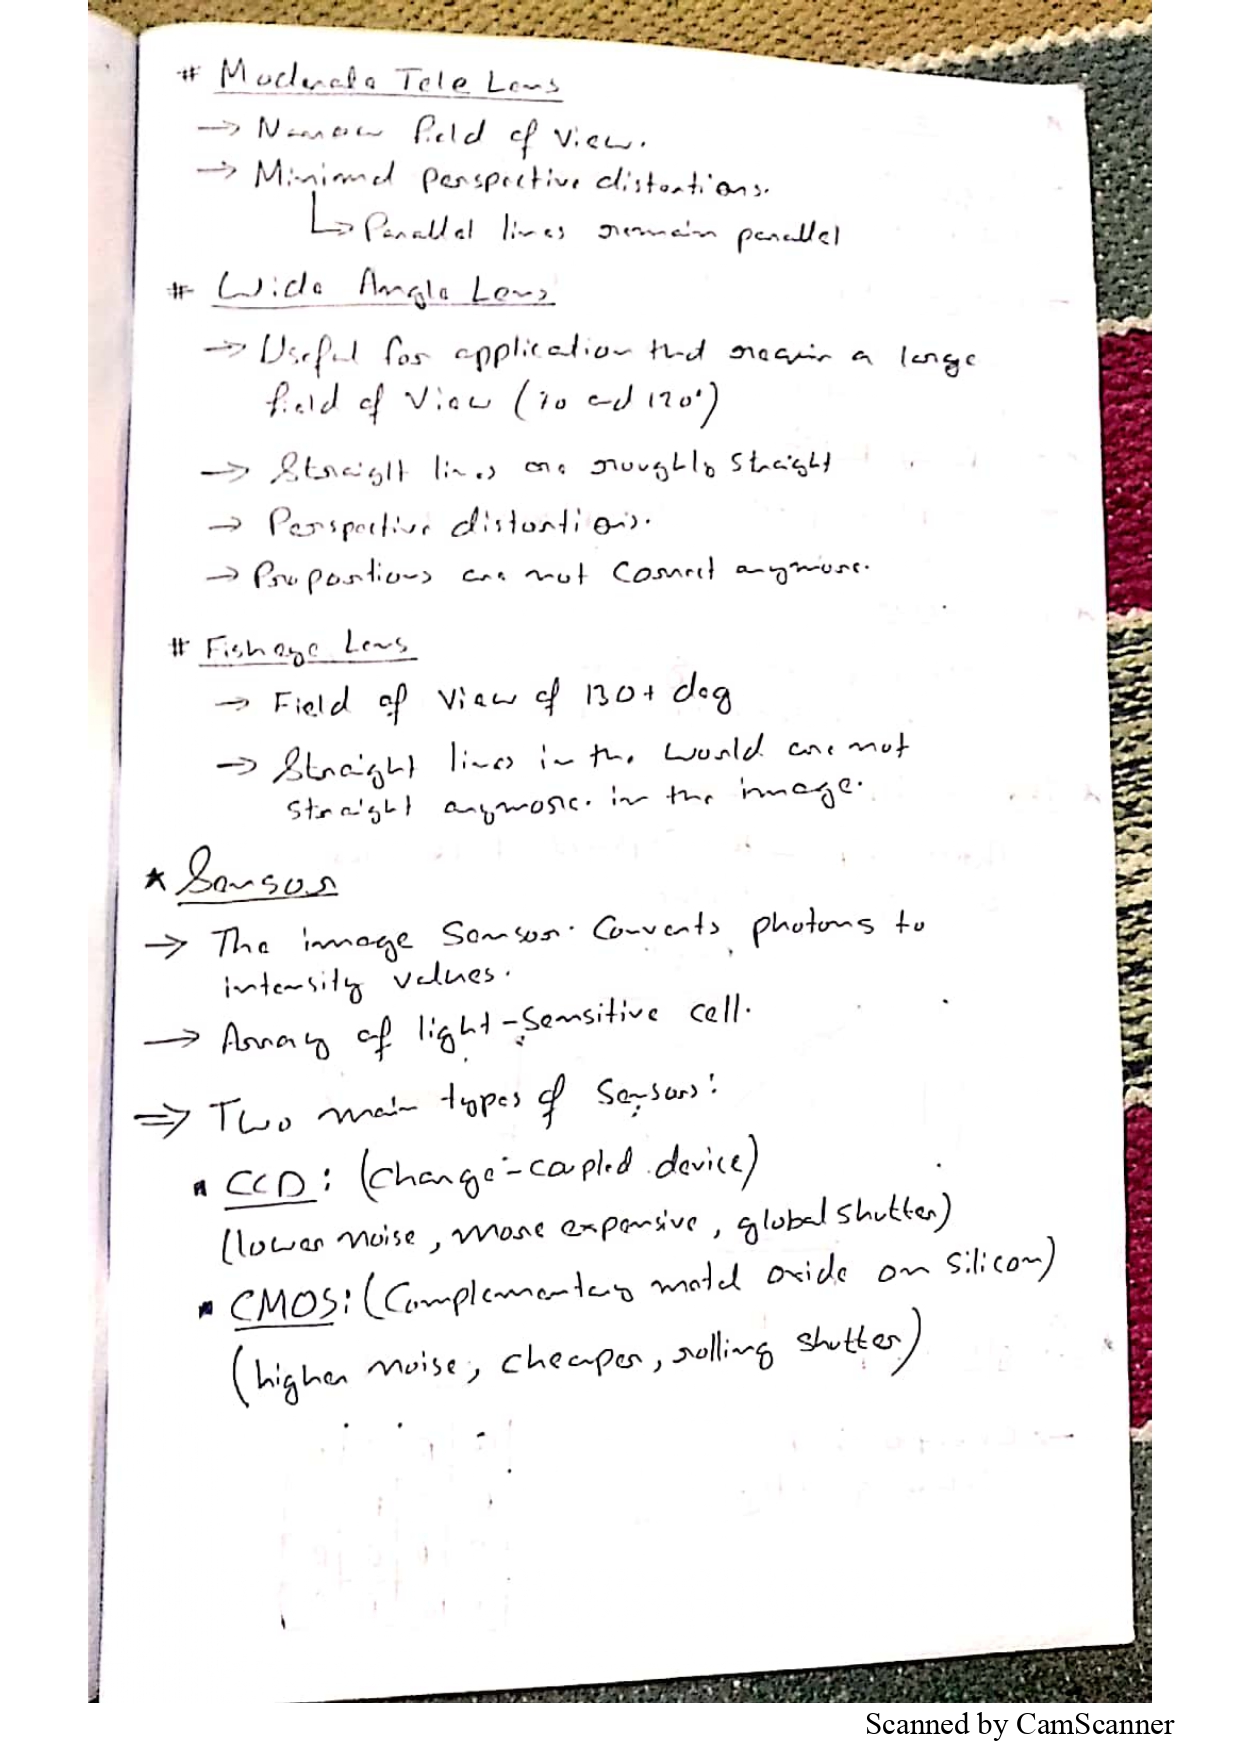 # Moderate Tele Lens
→ Narrow field of view.
→ Minimal perspective distortions.
↳ Parallel lines remain parallel
# Wide Angle Lens
→ Useful for application that require a large
field of view (70 and 120°)
→ Straight lines are roughly straight
→ Perspective distortions.
→ Proportions are not correct anymore.
# Fisheye Lens
→ Field of view of 130+ deg
→ Straight lines in the world are not
straight anymore. in the image.
★ Sensor
→ The image sensor converts photons to
intensity values.
→ Array of light-sensitive cell.
⇒ Two main types of sensors:
▪ CCD: (Charge-coupled device)
(lower noise, more expensive, global shutter)
▪ CMOS: (Complementary metal oxide on silicon)
(higher noise, cheaper, rolling shutter)
Scanned by CamScanner